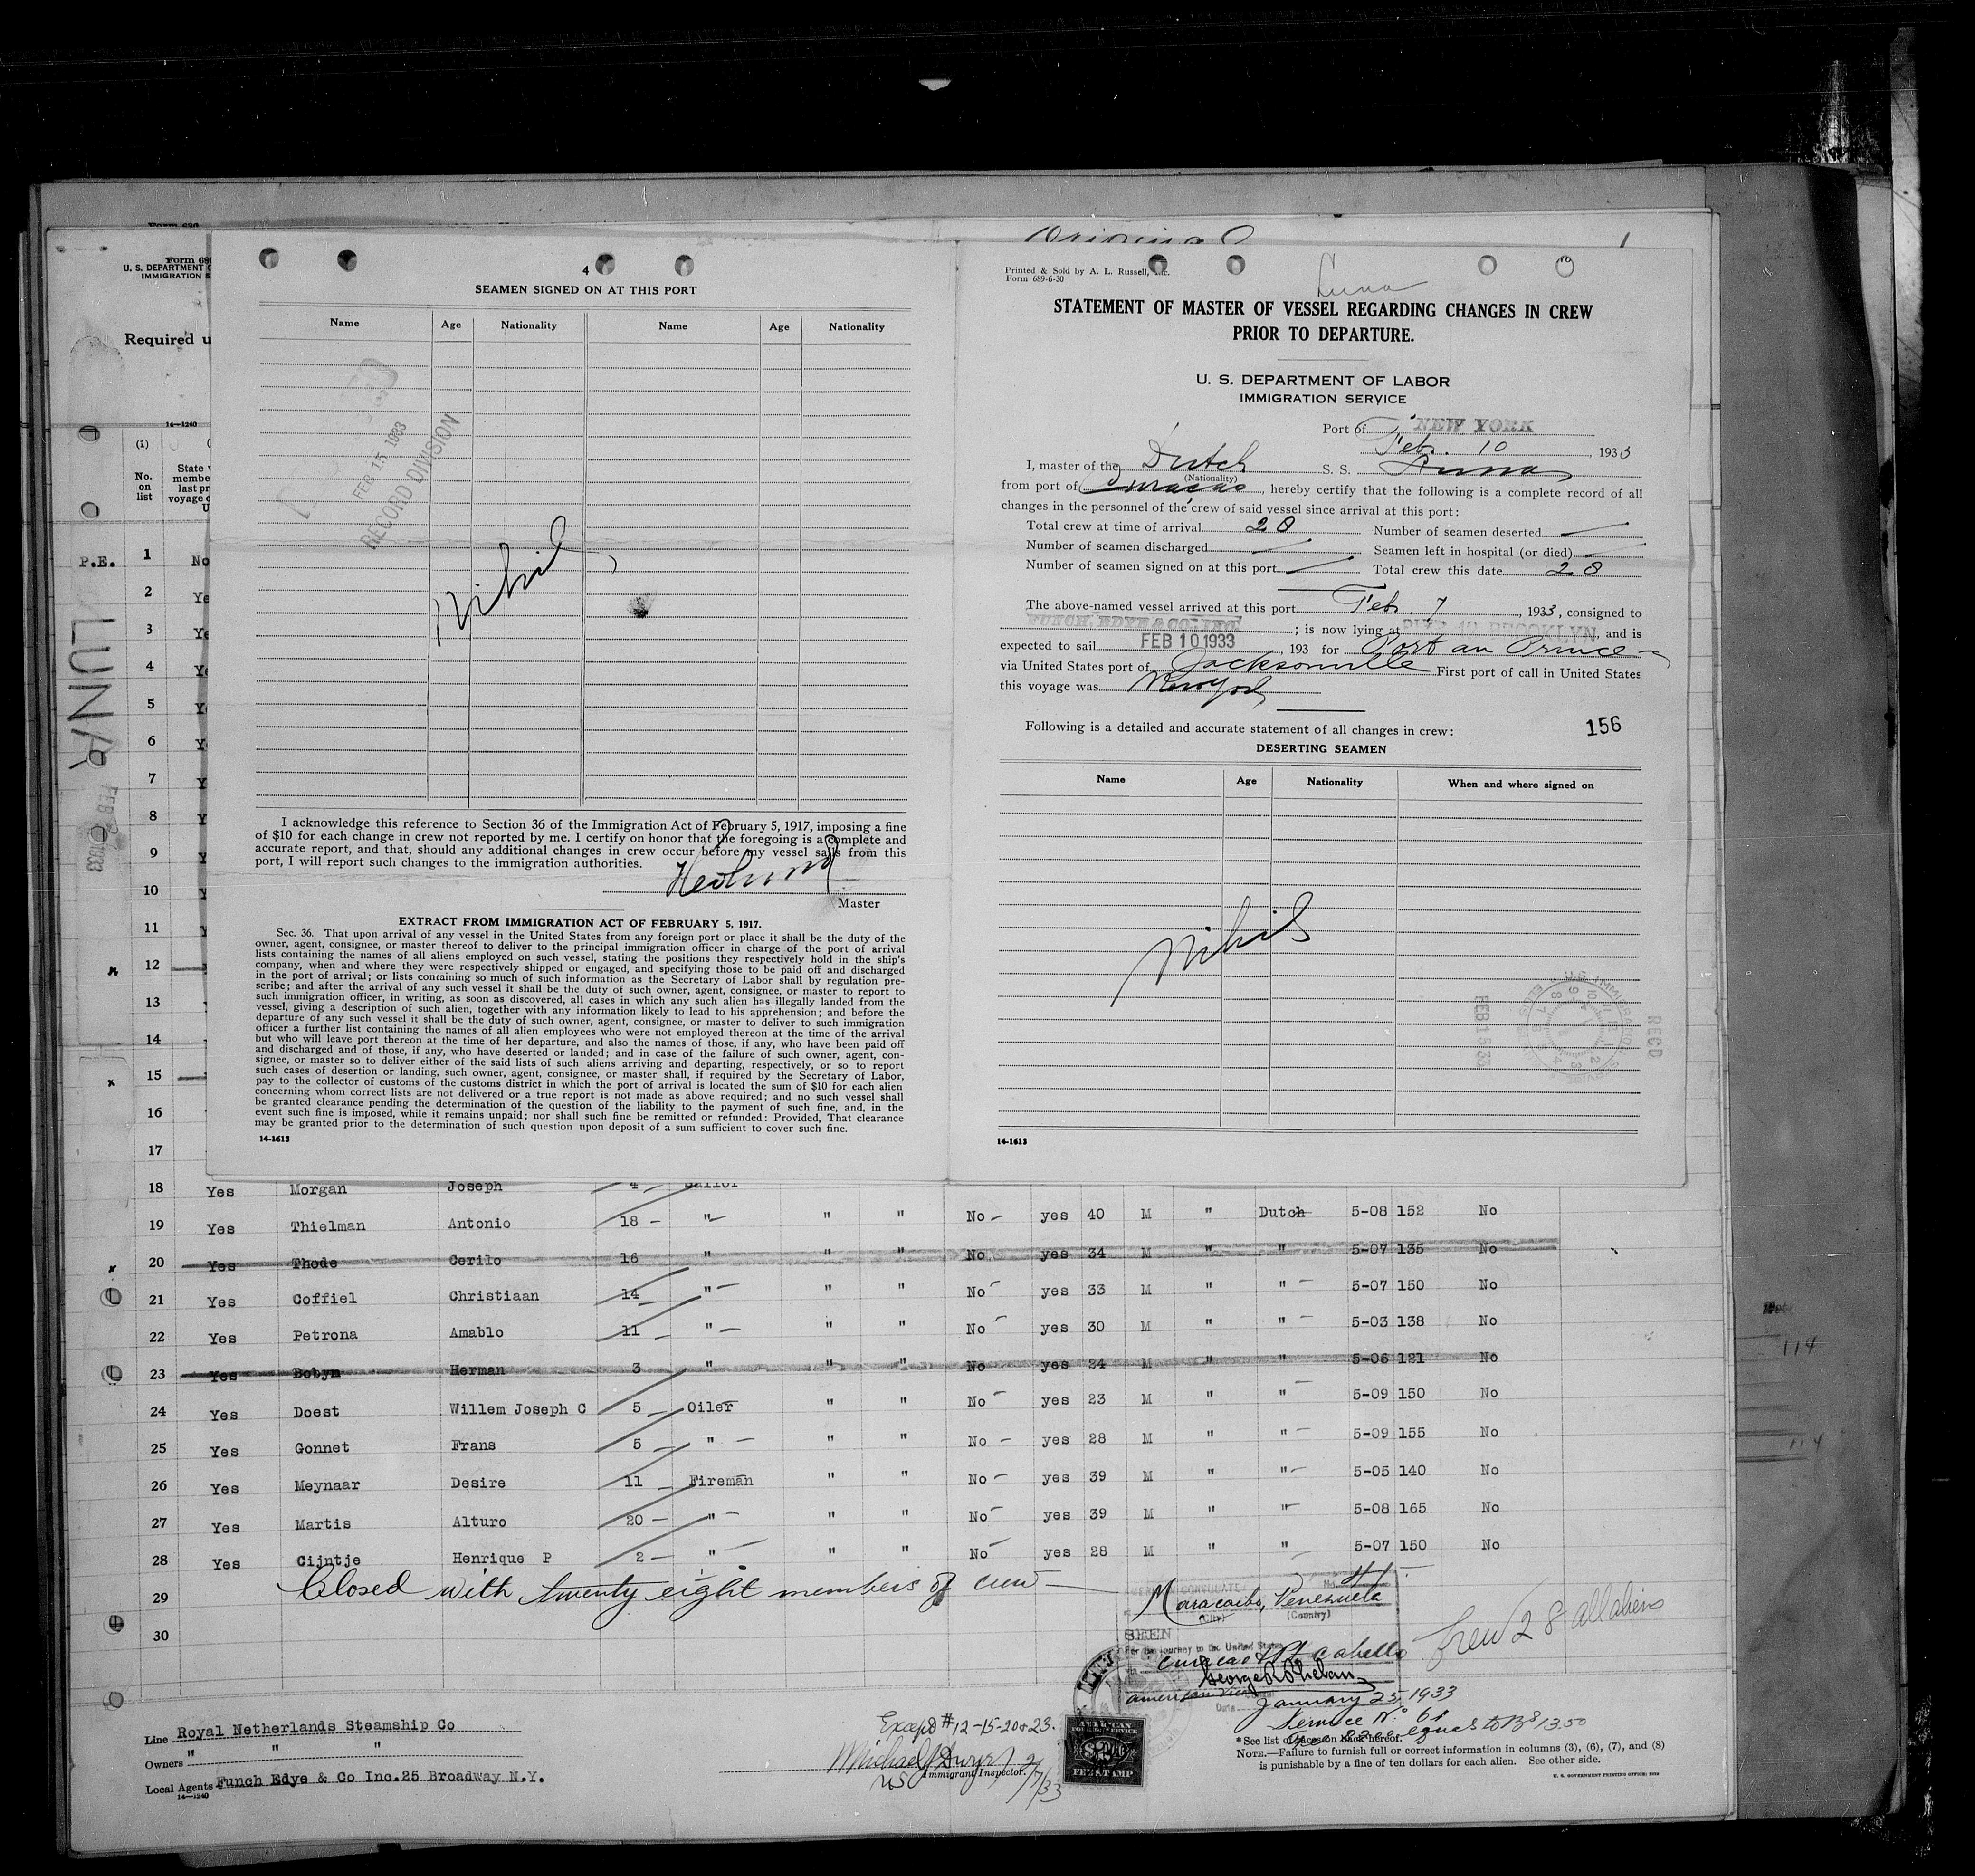 Form 680
Form 689
U. S. DEPARTMENT O
IMMIGRATION S
Required u
14—1240
(1)
No.
on
list
State w
membe
last pr
voyage o
U
P.E.
LUNA
FEB
1933
1 No
2 Ye
3 Ye
4 Ye
5 Y
6 Y
7 Y
8 Y
9 Y
10 Y
11 Y
12
13
14
15
16
17
4
SEAMEN SIGNED ON AT THIS PORT
Name Age Nationality Name Age Nationality
FEB 15 1933
RECORD DIVISION
Nihil
I acknowledge this reference to Section 36 of the Immigration Act of February 5, 1917, imposing a fine
of $10 for each change in crew not reported by me. I certify on honor that the foregoing is a complete and
accurate report, and that, should any additional changes in crew occur before my vessel sails from this
port, I will report such changes to the immigration authorities.
Master
EXTRACT FROM IMMIGRATION ACT OF FEBRUARY 5, 1917.
Sec. 36. That upon arrival of any vessel in the United States from any foreign port or place it shall be the duty of the
owner, agent, consignee, or master thereof to deliver to the principal immigration officer in charge of the port of arrival
lists containing the names of all aliens employed on such vessel, stating the positions they respectively hold in the ship's
company, when and where they were respectively shipped or engaged, and specifying those to be paid off and discharged
in the port of arrival; or lists containing so much of such information as the Secretary of Labor shall by regulation pre-
scribe; and after the arrival of any such vessel it shall be the duty of such owner, agent, consignee, or master to report to
such immigration officer, in writing, as soon as discovered, all cases in which any such alien has illegally landed from the
vessel, giving a description of such alien, together with any information likely to lead to his apprehension; and before the
departure of any such vessel it shall be the duty of such owner, agent, consignee, or master to deliver to such immigration
officer a further list containing the names of all alien employees who were not employed thereon at the time of the arrival
but who will leave port thereon at the time of her departure, and also the names of those, if any, who have been paid off
and discharged and of those, if any, who have deserted or landed; and in case of the failure of such owner, agent, con-
signee, or master so to deliver either of the said lists of such aliens arriving and departing, respectively, or so to report
such cases of desertion or landing, such owner, agent, consignee, or master shall, if required by the Secretary of Labor,
pay to the collector of customs of the customs district in which the port of arrival is located the sum of $10 for each alien
concerning whom correct lists are not delivered or a true report is not made as above required; and no such vessel shall
be granted clearance pending the determination of the question of the liability to the payment of such fine, and, in the
event such fine is imposed, while it remains unpaid; nor shall such fine be remitted or refunded: Provided, That clearance
may be granted prior to the determination of such question upon deposit of a sum sufficient to cover such fine.
14-1613
Original
1
Printed & Sold by A. L. Russell, Inc.
Form 689-6-30
Luna
STATEMENT OF MASTER OF VESSEL REGARDING CHANGES IN CREW
PRIOR TO DEPARTURE.
U. S. DEPARTMENT OF LABOR
IMMIGRATION SERVICE
Port of NEW YORK
Feb. 10, 1933
I, master of the Dutch S. S. Luna
(Nationality)
from port of Curacao, hereby certify that the following is a complete record of all
changes in the personnel of the crew of said vessel since arrival at this port:
Total crew at time of arrival 28 Number of seamen deserted —
Number of seamen discharged — Seamen left in hospital (or died) —
Number of seamen signed on at this port — Total crew this date 28
The above-named vessel arrived at this port Feb. 7, 1933, consigned to
FUNCH, EDYE & CO. INC.; is now lying at PIER 42 BROOKLYN, and is
expected to sail FEB 10 1933, 193 for Port au Prince
via United States port of Jacksonville First port of call in United States
this voyage was New York
Following is a detailed and accurate statement of all changes in crew:
156
DESERTING SEAMEN
Name Age Nationality When and where signed on
Nihil
FEB 15 33
U.S. IMMIGRATION SERVICE
REC'D
14-1613
18 Yes Morgan Joseph 4 Sailor
19 Yes Thielman Antonio 18 — " " " No — yes 40 M " Dutch 5-08 152 No
20 Yes Thode Cerilo 16 " " " No yes 34 M " " 5-07 135 No
21 Yes Coffiel Christiaan 14 " — " " No — yes 33 M " " — 5-07 150 No
22 Yes Petrona Amablo 11 — " — " " No — yes 30 M " " — 5-03 138 No
23 Yes Bobyn Herman 3 " " " No yes 24 M " " 5-06 121 No
24 Yes Doest Willem Joseph C 5 — Oiler " " No — yes 23 M " " — 5-09 150 No
25 Yes Gonnet Frans 5 — " — " " No — yes 28 M " " — 5-09 155 No
26 Yes Meynaar Desire 11 — Fireman " " No — yes 39 M " " — 5-05 140 No
27 Yes Martis Alturo 20 — " — " " No — yes 39 M " " — 5-08 165 No
28 Yes Cijntje Henrique P 2 — " — " " No — yes 28 M " " 5-07 150 No
29 Closed with twenty eight members of crew —
30
No. 44
Maracaibo, Venezuela
(City) (Country)
SEEN
For the journey to the United States
via Curacao & Pt Cabello
George R Phelan
American Vice
Date January 25, 1933
Service No. 61
Fee \$2.00 equal to Bs 13.50
Crew 28 all aliens
Line Royal Netherlands Steamship Co
Owners " " "
Local Agents Funch Edye & Co Inc. 25 Broadway N.Y.
14—1240
Except # 12-15-20 & 23.
Michael J Dwyer 2/7/33
US Immigrant Inspector.
AMERICAN
FOREIGN SERVICE
FEE STAMP
* See list of races on back hereof.
NOTE.—Failure to furnish full or correct information in columns (3), (6), (7), and (8)
is punishable by a fine of ten dollars for each alien. See other side.
U. S. GOVERNMENT PRINTING OFFICE: 1929
114
114